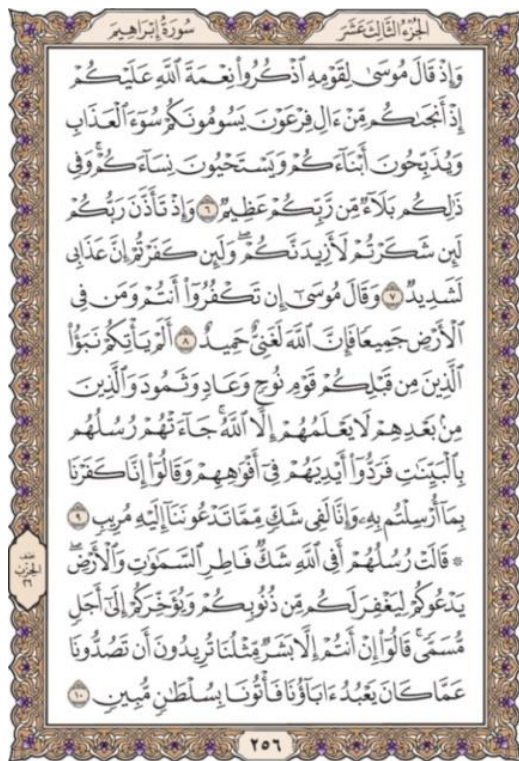 الجُزْءُ الثَّالِثَ عَشَرَ سُورَةُ إِبْرَاهِيمَ
وَإِذْ قَالَ مُوسَىٰ لِقَوْمِهِ ٱذْكُرُوا۟ نِعْمَةَ ٱللَّهِ عَلَيْكُمْ
إِذْ أَنجَىٰكُم مِّنْ ءَالِ فِرْعَوْنَ يَسُومُونَكُمْ سُوٓءَ ٱلْعَذَابِ
وَيُذَبِّحُونَ أَبْنَآءَكُمْ وَيَسْتَحْيُونَ نِسَآءَكُمْ ۚ وَفِى
ذَٰلِكُم بَلَآءٌ مِّن رَّبِّكُمْ عَظِيمٌ ٦ وَإِذْ تَأَذَّنَ رَبُّكُمْ
لَئِن شَكَرْتُمْ لَأَزِيدَنَّكُمْ ۖ وَلَئِن كَفَرْتُمْ إِنَّ عَذَابِى
لَشَدِيدٌ ٧ وَقَالَ مُوسَىٰٓ إِن تَكْفُرُوٓا۟ أَنتُمْ وَمَن فِى
ٱلْأَرْضِ جَمِيعًا فَإِنَّ ٱللَّهَ لَغَنِىٌّ حَمِيدٌ ٨ أَلَمْ يَأْتِكُمْ نَبَؤُا۟
ٱلَّذِينَ مِن قَبْلِكُمْ قَوْمِ نُوحٍ وَعَادٍ وَثَمُودَ وَٱلَّذِينَ
مِنۢ بَعْدِهِمْ لَا يَعْلَمُهُمْ إِلَّا ٱللَّهُ ۚ جَآءَتْهُمْ رُسُلُهُم
بِٱلْبَيِّنَٰتِ فَرَدُّوٓا۟ أَيْدِيَهُمْ فِىٓ أَفْوَٰهِهِمْ وَقَالُوٓا۟ إِنَّا كَفَرْنَا
بِمَآ أُرْسِلْتُم بِهِۦ وَإِنَّا لَفِى شَكٍّ مِّمَّا تَدْعُونَنَآ إِلَيْهِ مُرِيبٍ ٩
۞ قَالَتْ رُسُلُهُمْ أَفِى ٱللَّهِ شَكٌّ فَاطِرِ ٱلسَّمَٰوَٰتِ وَٱلْأَرْضِ ۖ
يَدْعُوكُمْ لِيَغْفِرَ لَكُم مِّن ذُنُوبِكُمْ وَيُؤَخِّرَكُمْ إِلَىٰٓ أَجَلٍ
مُّسَمًّى ۚ قَالُوٓا۟ إِنْ أَنتُمْ إِلَّا بَشَرٌ مِّثْلُنَا تُرِيدُونَ أَن تَصُدُّونَا
عَمَّا كَانَ يَعْبُدُ ءَابَآؤُنَا فَأْتُونَا بِسُلْطَٰنٍ مُّبِينٍ ١٠
نصف
الحزب
٢٦
٢٥٦